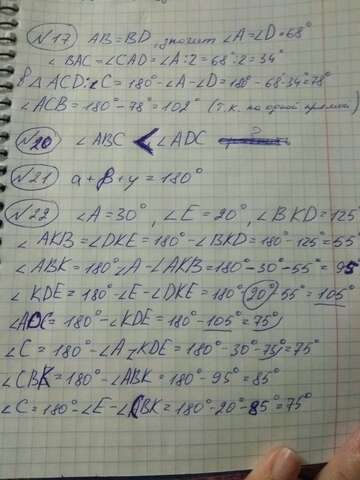 №17 AB=BD, значит ∠A=∠D=68°
∠BAC=∠CAD=∠A:2=68°:2=34°
В △ACD: ∠C=180°-∠A-∠D=180-68-34=78°
∠ACB=180°-78°=102° (т.к. на одной прямой)
№20 ∠ABC < ∠ADC
№21 a+β+y=180°
№22 ∠A=30°, ∠E=20°, ∠BKD=125°
∠AKB=∠DKE=180°-∠BKD=180°-125°=55°
∠ABK=180°-∠A-∠AKB=180°-30°-55°=95°
∠KDE=180°-∠E-∠DKE=180°-20°-55°=105°
∠ADC=180°-∠KDE=180°-105°=75°
∠C=180°-∠A-∠KDE=180°-30°-75°=75°
∠CBK=180°-∠ABK=180°-95°=85°
∠C=180°-∠E-∠CBK=180°-20°-85°=75°